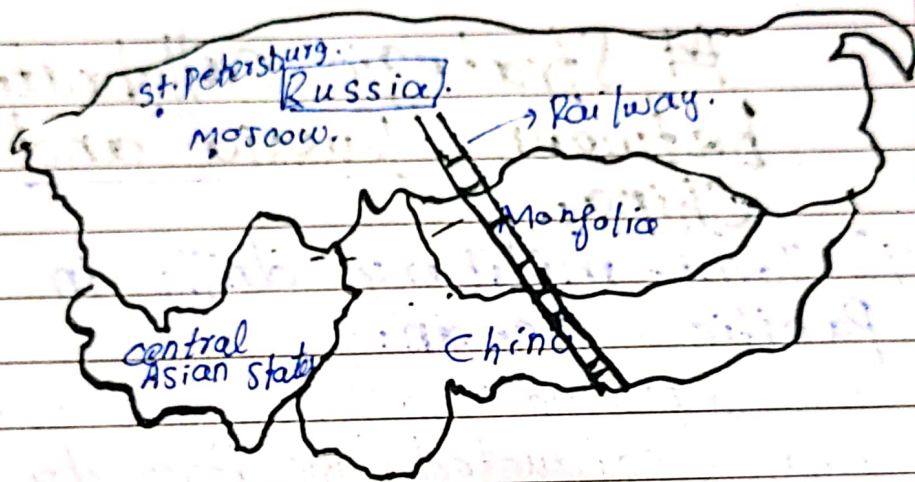 st. Petersburg.
Russia.
Moscow.
Railway.
Mongolia
China
Central
Asian States